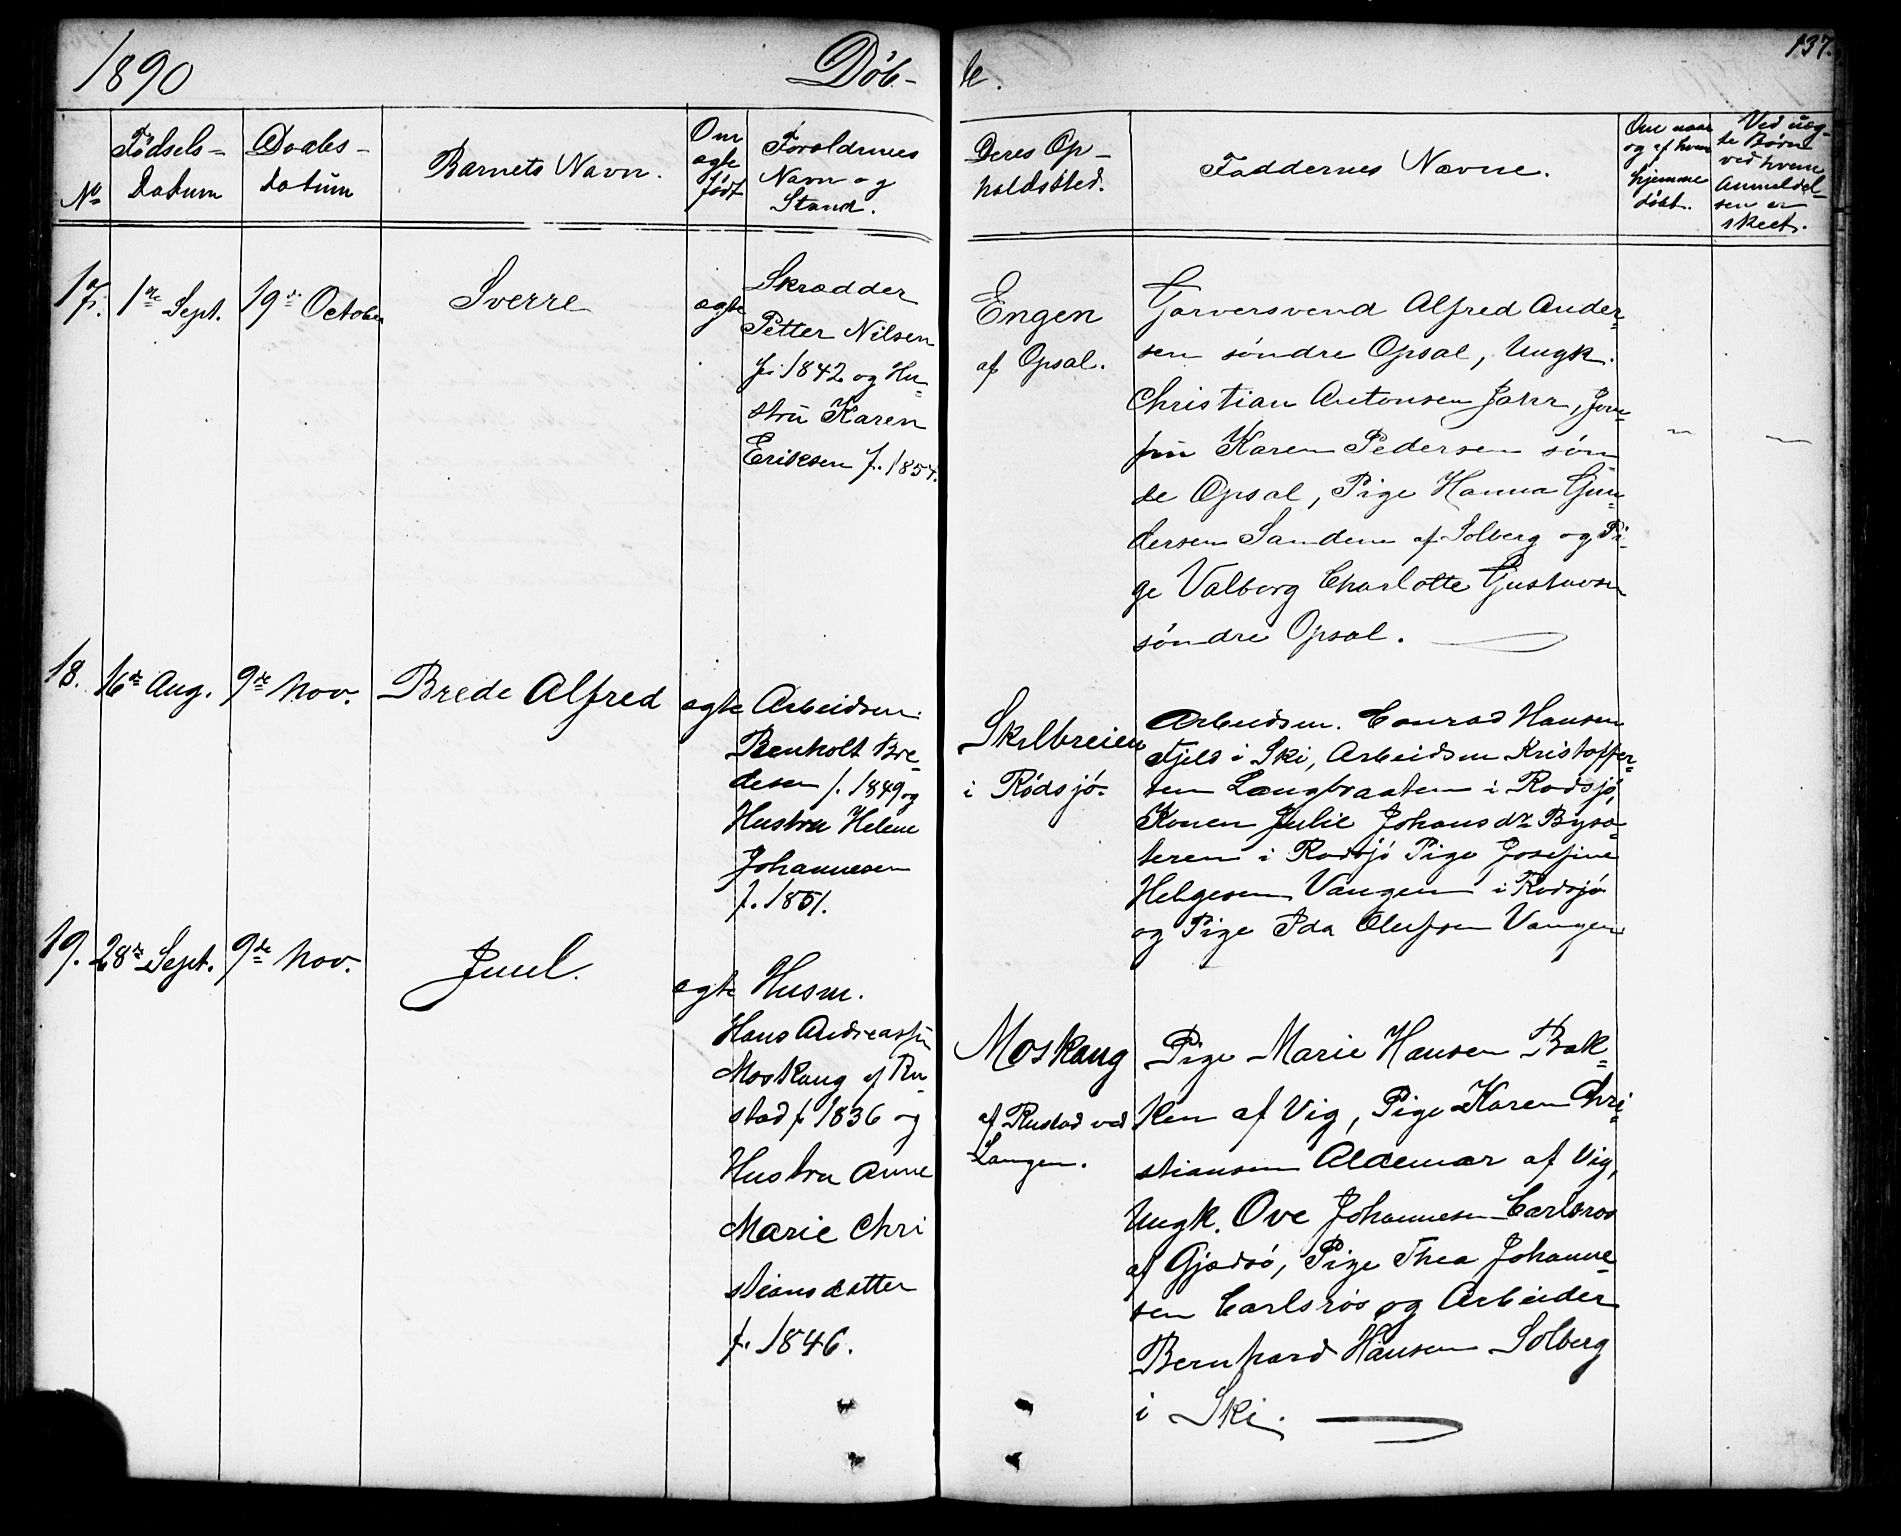 1890
Døb-
te.
137.
No
Fødsels-
Datum
Daabs-
datum
Barnets Navn.
Om
ægte
født
Forældrenes
Navn og
Stand.
Deres Op-
holdssted.
Faddernes Navne.
Om naar
og af hvem
hjemme
døbt.
Ved uæg-
te Børn
ved hvem
Anmeldel-
sen er
skeet.
17.
1ste Sept.
19de October
Sverre
ægte
Skrædder
Petter Nilsen
f. 1842 og Hu-
stru Karen
Eriksen f. 1857.
Engen
af Opsal.
Garversvend Alfred Ander-
sen søndre Opsal, Ungk.
Christian Antonsen Jahr, Jom-
fru Karen Pedersen søn-
de Opsal, Pige Hanna Gun-
dersen Sandene af Solberg og Pi-
ge Valborg Charlotte Gustavsen
søndre Opsal.
18.
16de Aug.
9de Nov.
Brede Alfred
ægte
Arbeidsm.
Benholt Bre-
desen f. 1849 og
Hustru Helene
Johannesen
f. 1851.
Skilbreien
i Rødsjø.
Arbeidsm. Conrad Hansen
Fjeld i Ski, Arbeidsm Kristoffer-
sen Langbraaten i Rødsjø,
Konen Julie Johansdr Bysæ-
teren i Rødsjø Pige Josefine
Helgesen Vangen i Rødsjø
og Pige Ida Olufsen Vangen
19.
28de Sept.
9de Nov.
Juul.
ægte
Husm.
Hans Andreassen
Moskaug af Ru-
stad f. 1836 og
Hustru Anne
Marie Chri
stiansdatter
f. 1846.
Moskaug
af Rustad ved
Langen.
Pige Marie Hansen Bak-
ken af Vig, Pige Karen Chri-
stiansen Aldemar af Vig,
Ungk. Ove Johannesen Carlsrøs
af Gjedsø, Pige Thea Johanne-
sen Carlsrøs og Arbeider
Bernhard Hansen Solberg
i Ski.